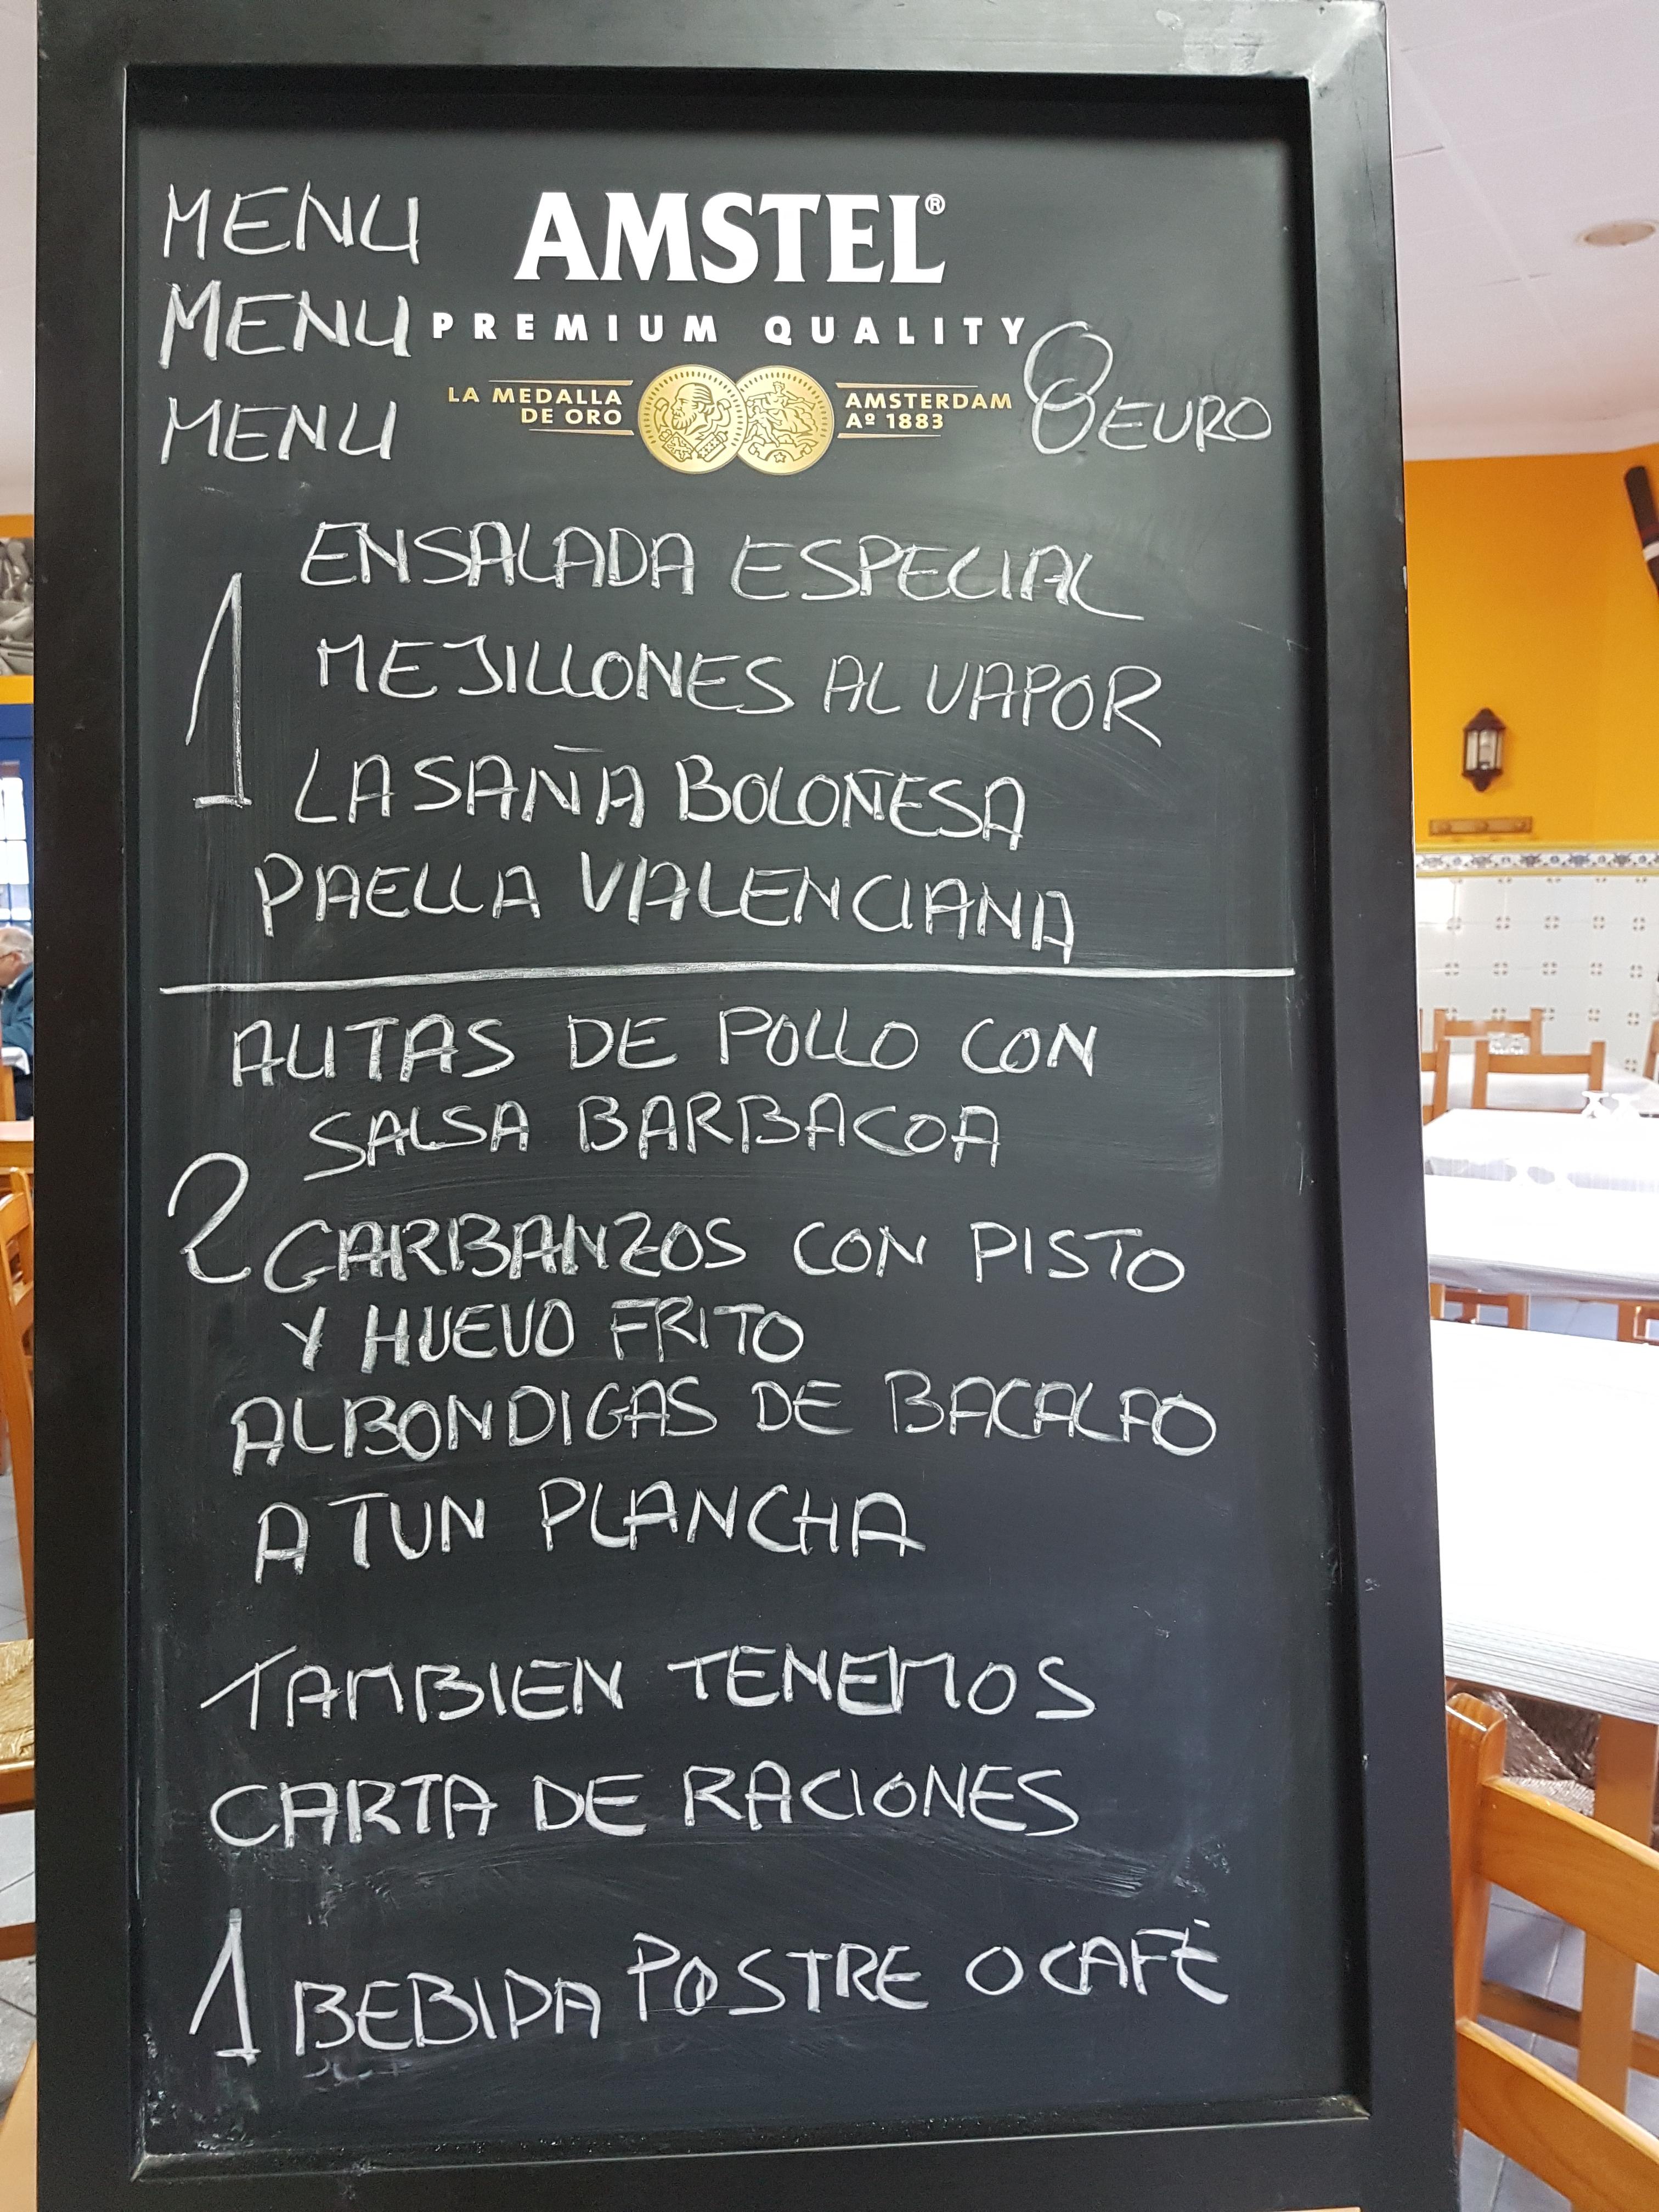 MENU
AMSTEL®
MENU
PREMIUM QUALITY
MENU
LA MEDALLA
DE ORO
AMSTERDAM
Aº 1883
8 EURO
1
ENSALADA ESPECIAL
MEJILLONES AL VAPOR
LASAÑA BOLOÑESA
PAELLA VALENCIANA
ALITAS DE POLLO CON
SALSA BARBACOA
2
GARBANZOS CON PISTO
Y HUEVO FRITO
ALBONDIGAS DE BACALAO
ATUN PLANCHA
TAMBIEN TENEMOS
CARTA DE RACIONES
1 BEBIDA POSTRE O CAFÉ